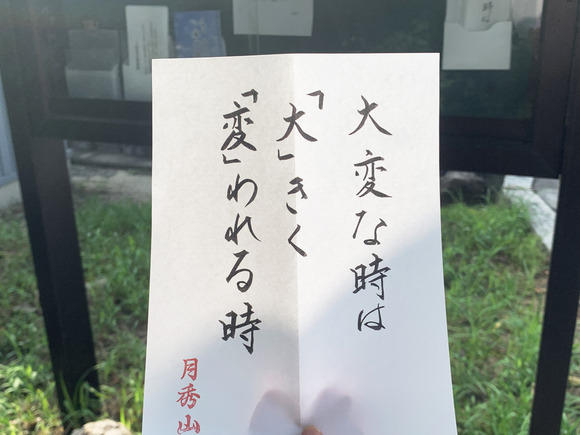 大変な時は
「大」きく
「変」われる時
月秀山